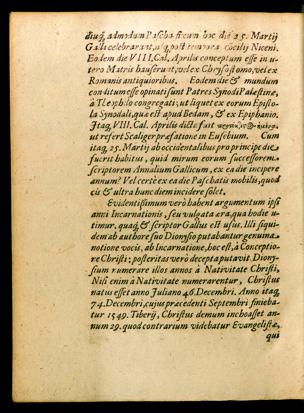 diuq, admodum Pascha fixum hoc die 25. Martij
Galli celebrarunt, usq, post tempora Cöcilij Niceni.
Eodem die VIII. Cal. Aprilis conceptum esse in u-
tero Matris hauserunt, vel ex Chrysostomo, vel ex
Romanis antiquioribus. Eodem die & mundum
conditum esse opinati sunt Patres Synodi Palestinæ,
à Theophilo congregati: ut liquet ex eorum Episto-
la Synodali, quæ est apud Bedam, & ex Epiphanio.
Itaq, VIII. Cal. Aprilis dicta fuit
ut refert Scaliger præfatione in Eusebium. Cum
itaq, 25. Martij ab occidentalibus pro principe die
fuerit habitus, quid mirum eorum successorem
scriptorem Annalium Gallicum, ex ea die incipere
annum? Vel certè ex ea die Paschatis mobilis, quod
cis & ultra hunc diem incidere solet.
Evidentissimum verò habent argumentum ipsi
anni Incarnationis, seu vulgata æra, qua hodie u-
timur, quaq, & scriptor Gallus est usus. Illi siqui-
dem ab authore suo Dionysio putabantur, genuina
notione vocis, ab Incarnatione, hoc est, à Conceptio-
ne Christi; posteritas verò decepta putavit Diony-
sium numerare illos annos à Nativitate Christi,
Nisi enim à Nativitate numerarentur, Christus
natus esset anno Juliano 46. Decembri. Anno itaq,
74. Decembri, cujus præcedenti Septembri finieba-
tur 1549. Tiberij, Christus demum inchoasset an-
num 29. quod contrarium videbatur Evangelistæ,
qui